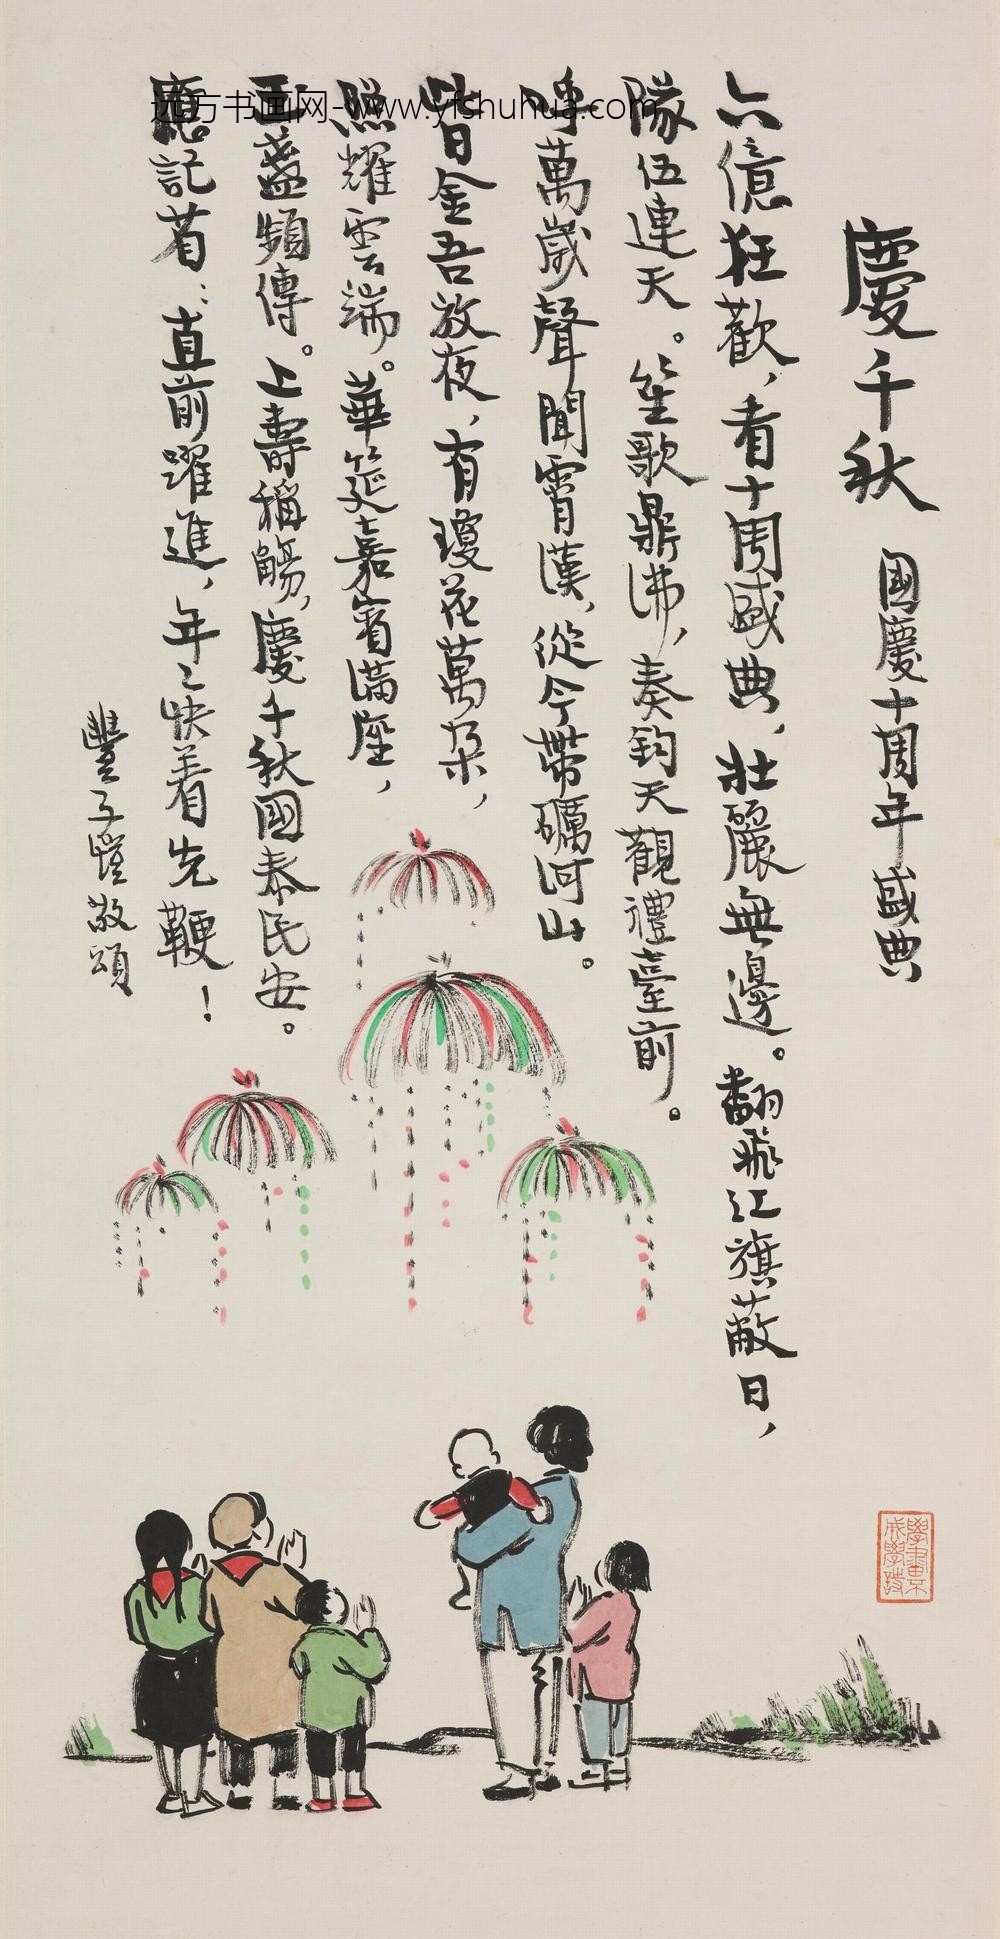 慶千秋 國慶十周年盛典
六億狂歡，看十周盛典，壯麗無邊。翻飛紅旗蔽日，
隊伍連天。笙歌鼎沸，奏鈞天觀禮臺前。
呼萬歲聲聞霄漢，從今帶礪河山。
日金吾放夜，有瓊花萬朵，
照耀雲端。華筵嘉賓滿座，
玉盞頻傳。上壽稱觴，慶千秋國泰民安。
應記着：直前躍進，年〻快着先鞭！
豐子愷敬頌
远方书画网-www.yfshuhua.com